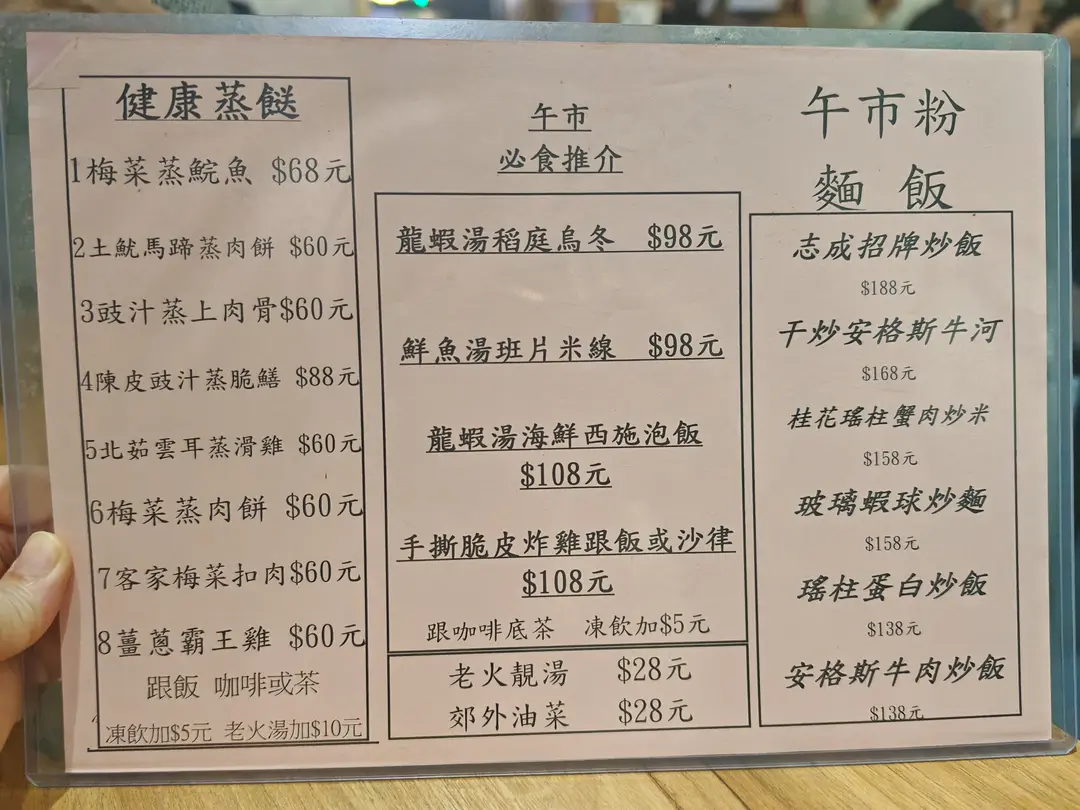 健康蒸餸
1梅菜蒸鯇魚 $68元
2土魷馬蹄蒸肉餅 $60元
3豉汁蒸上肉骨$60元
4陳皮豉汁蒸脆鱔 $88元
5北茹雲耳蒸滑雞 $60元
6梅菜蒸肉餅 $60元
7客家梅菜扣肉$60元
8薑蔥霸王雞 $60元
跟飯 咖啡或茶
凍飲加$5元 老火湯加$10元
午市
必食推介
龍蝦湯稻庭烏冬 $98元
鮮魚湯班片米線 $98元
龍蝦湯海鮮西施泡飯
$108元
手撕脆皮炸雞跟飯或沙律
$108元
跟咖啡底茶 凍飲加$5元
老火靚湯 $28元
郊外油菜 $28元
午市粉
麵 飯
志成招牌炒飯
$188元
干炒安格斯牛河
$168元
桂花瑤柱蟹肉炒米
$158元
玻璃蝦球炒麵
$158元
瑤柱蛋白炒飯
$138元
安格斯牛肉炒飯
$138元